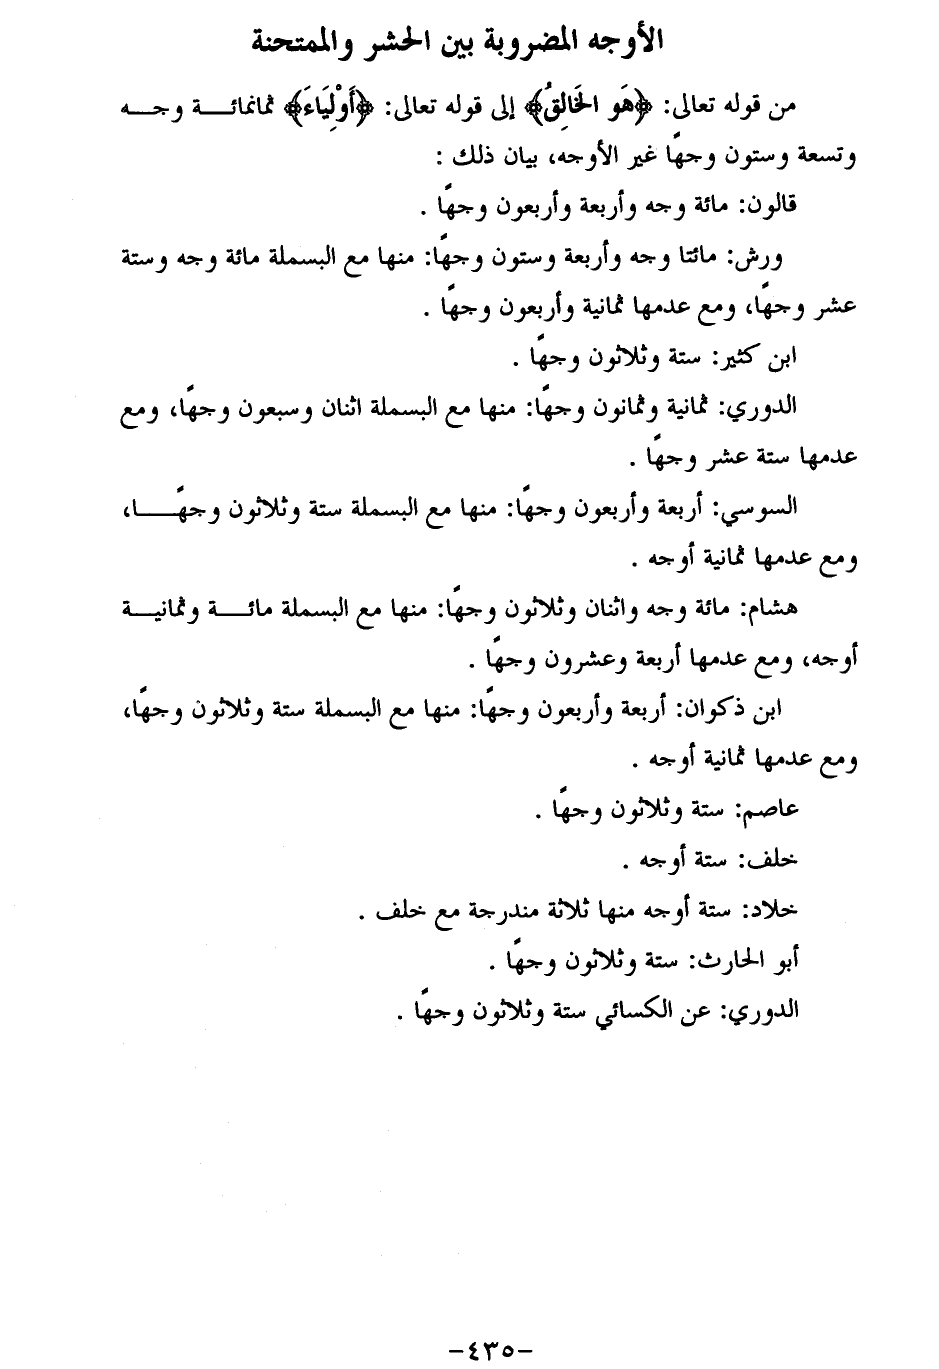 الأوجه المضروبة بين الحشر والممتحنة
من قوله تعالى: ﴿هَو الخَالِقُ﴾ إلى قوله تعالى: ﴿أَوْلِيَاءَ﴾ ثمانمائـــة وجـــه
وتسعة وستون وجهًا غير الأوجه، بيان ذلك :
قالون: مائة وجه وأربعة وأربعون وجهًا .
ورش: مائتا وجه وأربعة وستون وجهًا: منها مع البسملة مائة وجه وستة
عشر وجهًا، ومع عدمها ثمانية وأربعون وجهًا .
ابن كثير: ستة وثلاثون وجهًا .
الدوري: ثمانية وثمانون وجهًا: منها مع البسملة اثنان وسبعون وجهًا، ومع
عدمها ستة عشر وجهًا .
السوسي: أربعة وأربعون وجهًا: منها مع البسملة ستة وثلاثون وجهًـــا،
ومع عدمها ثمانية أوجه .
هشام: مائة وجه واثنان وثلاثون وجهًا: منها مع البسملة مائـــة وثمانيـــة
أوجه، ومع عدمها أربعة وعشرون وجهًا .
ابن ذكوان: أربعة وأربعون وجهًا: منها مع البسملة ستة وثلاثون وجهًا،
ومع عدمها ثمانية أوجه .
عاصم: ستة وثلاثون وجهًا .
خلف: ستة أوجه .
خلاد: ستة أوجه منها ثلاثة مندرجة مع خلف .
أبو الحارث: ستة وثلاثون وجهًا .
الدوري: عن الكسائي ستة وثلاثون وجهًا .
-٤٣٥-